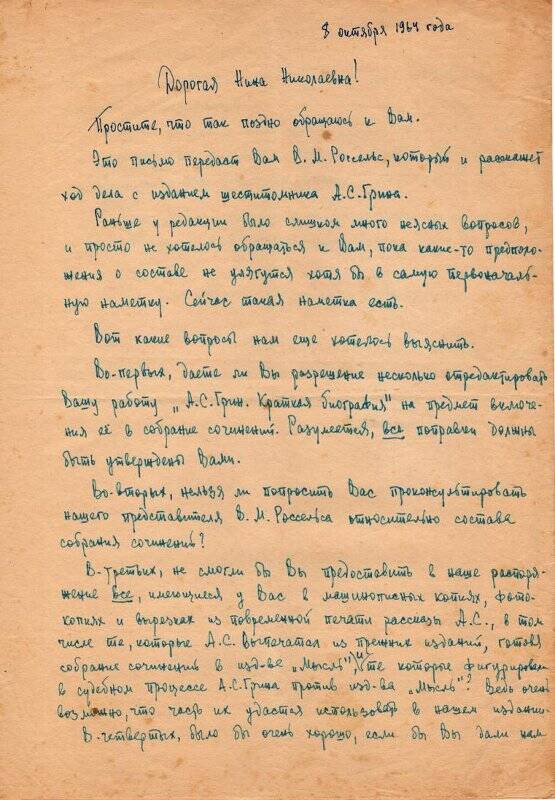 8 октября 1964 года
Дорогая Нина Николаевна!
Простите, что так поздно обращаюсь к Вам.
Это письмо передаст Вам В. М. Россельс, который и расскажет
ход дела с изданием шеститомника А.С.Грина.
Раньше у редакции было слишком много неясных вопросов,
и просто не хотелось обращаться к Вам, пока какие-то предполо-
жения о составе не улягутся хотя бы в самую первоначаль-
ную наметку. Сейчас такая наметка есть.
Вот какие вопросы нам еще хотелось выяснить.
Во-первых, даете ли Вы разрешение несколько отредактировать
Вашу работу „А.С.Грин. Краткая биография" на предмет включе-
ния её в собрание сочинений. Разумеется, все поправки должны
быть утверждены Вами.
Во-вторых, нельзя ли попросить Вас проконсультировать
нашего представителя В. М. Россельса относительно состава
собрания сочинений?
В-третьих, не смогли бы Вы предоставить в наше распоря-
жение все, имеющиеся у Вас в машинописных копиях, фото-
копиях и вырезках из повременной печати рассказы А.С., в том
числе те, которые А.С. выпечатал из прежних изданий, готовя
собрание сочинений в изд-ве „Мысль", и те которые фигурировали
в судебном процессе А.С.Грина против изд-ва „Мысль"? Ведь очень
возможно, что часть их удастся использовать в нашем издании.
В-четвертых, было бы очень хорошо, если бы Вы дали нам